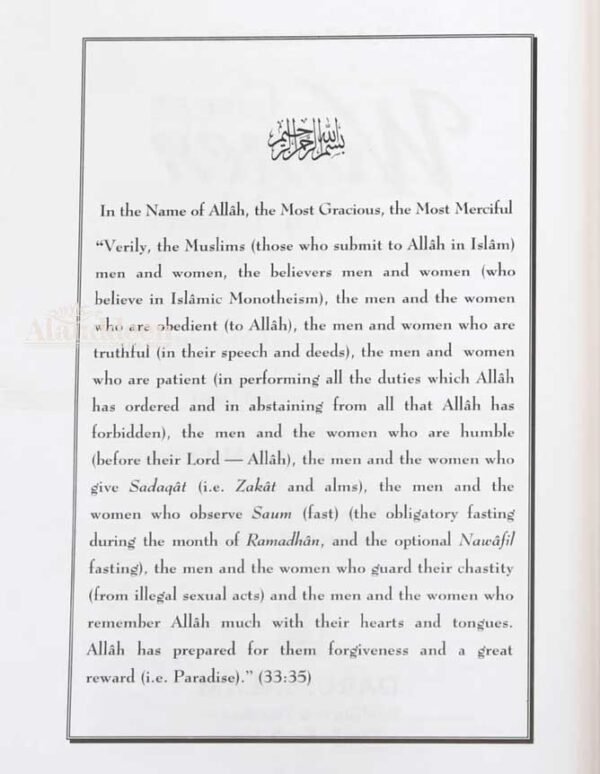 بسم الله الرحمن الرحيم
In the Name of Allâh, the Most Gracious, the Most Merciful
“Verily, the Muslims (those who submit to Allâh in Islâm)
men and women, the believers men and women (who
believe in Islâmic Monotheism), the men and the women
who are obedient (to Allâh), the men and women who are
truthful (in their speech and deeds), the men and women
who are patient (in performing all the duties which Allâh
has ordered and in abstaining from all that Allâh has
forbidden), the men and the women who are humble
(before their Lord — Allâh), the men and the women who
give Sadaqât (i.e. Zakât and alms), the men and the
women who observe Saum (fast) (the obligatory fasting
during the month of Ramadhân, and the optional Nawâfil
fasting), the men and the women who guard their chastity
(from illegal sexual acts) and the men and the women who
remember Allâh much with their hearts and tongues.
Allâh has prepared for them forgiveness and a great
reward (i.e. Paradise).” (33:35)